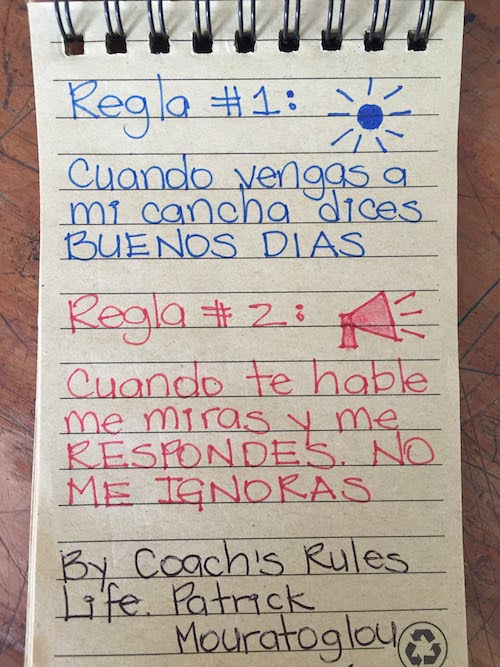 Regla #1:
Cuando vengas a
mi cancha dices
BUENOS DIAS
Regla #2:
Cuando te hable
me miras y me
RESPONDES. NO
ME IGNORAS
By Coach's Rules
Life. Patrick
Mouratoglou